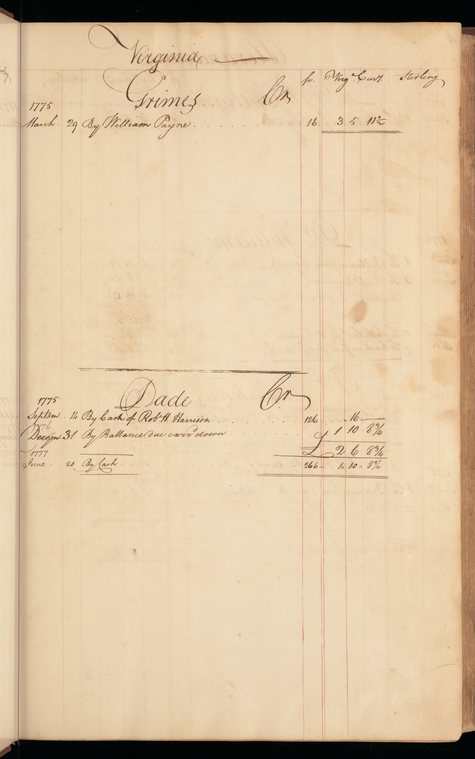 Virginia
fo. Virga Curry Sterling
Grimes Cr
1775
March 29 By William Payne 16 3 5 11½
Dade Cr
1775
Septem 14 By Cash of Robt H Harrison 126 16
Decem 31 By Ballance due carrd down 1 10 8¾
£ 2 6 8¾
1777
June 20 By Cash 266 1 10 8¾